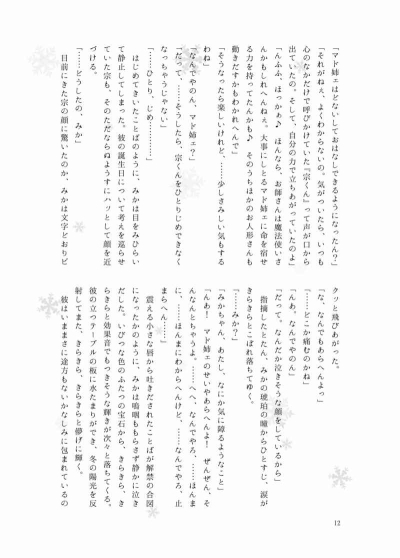 「マド姉ェはどないしておはなしできるようになったん？」
「それがねえ、よくわからないの。気がついたら、いつも
心のなかだけで呼びかけていた『宗くん』って声が口から
出ていたの。そして、自分の力で立ちあがっていたのよ」
「んふふ、ほっかぁ♪　ほんなら、お師さんは魔法使いさ
んかもしれへんねぇ。大事にしとるマド姉ェに命を宿せ
る力を持ってたんかも♪　そのうちほかのお人形さんも
動きだすかもわかれへんで」
「そうなったら楽しいけれど、……少しさみしい気もする
わね」
「なんでやのん、マド姉ェ？」
「だって、……そうしたら、宗くんをひとりじめできなく
なっちゃうじゃない」
「……ひとり、じめ………」
　はじめてきいたことばのように、みかは目をみひらい
て静止してしまった。彼の誕生日について考えを巡らせ
ていた宗も、そのただならぬようすにハッとして顔を近
づける。
「……どうしたの、みか」
　目前にきた宗の顔に驚いたのか、みかは文字どおりビ
クッと飛びあがった。
「な、なんでもあらへんよっ」
「……どこか痛むのかね」
「んあ、なんでやのん」
「だって、なんだか泣きそうな顔をしているから」
　指摘したとたん、みかの琥珀の瞳からひとすじ、涙が
きらきらとこぼれ落ちてゆく。
「……みか？」
「みかちゃん、あたし、なにか気に障るようなこと」
「んあ！　マド姉ェのせいやあらへんよ！　ぜんぜん、そ
んなんとちゃうよ。……へへ、なんでやろ、……ほんま
に、……ほんまにわからへんけど、……なんでやろ、止
まらへん……」
　震える小さな唇から吐きだされたことばが解禁の合図
になったかのように、みかは嗚咽ももらさず静かに泣き
だした。いびつな色のふたつの宝石から、きらきら、き
らきらと効果音でもつきそうな輝きが次々と落ちてくる。
彼の立つテーブルの板に水たまりができ、冬の陽光を反
射してまた、きらきら、きらきらと儚げに輝く。
　彼はいままさに途方もないかなしみに包まれているの
12